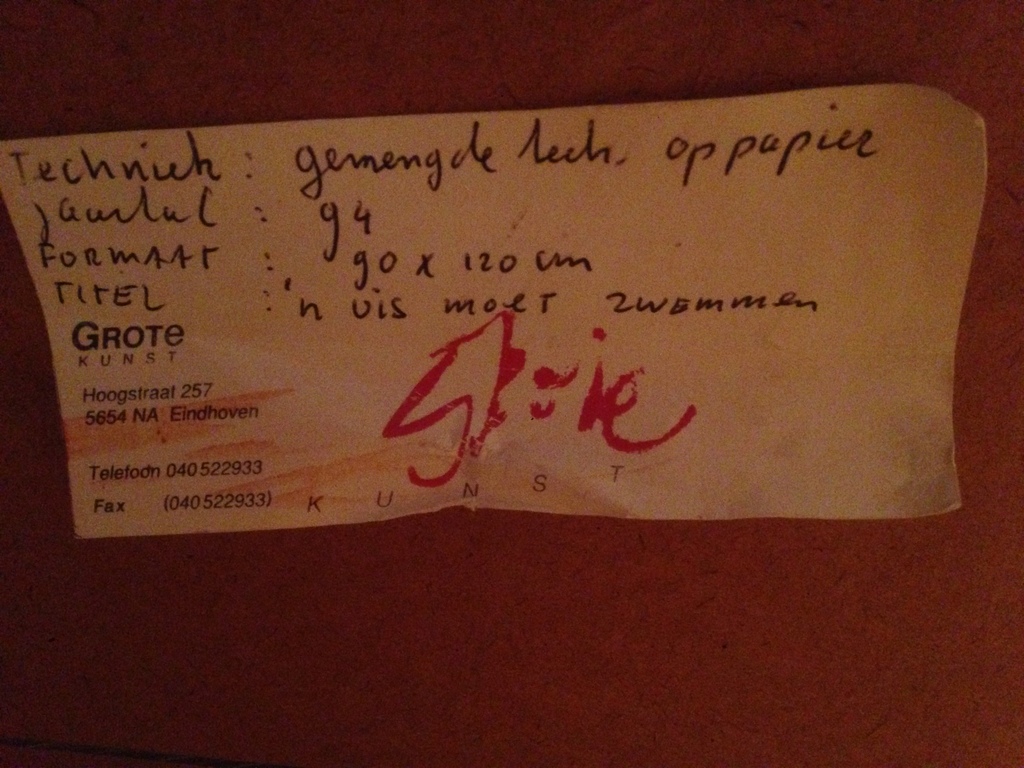 Techniek : gemengde tech. op papier
Jaartal : 94
FORMAAT : 90 x 120 cm
TITEL : 'n vis moet zwemmen
GROTE
KUNST
Hoogstraat 257
5654 NA Eindhoven
Telefoon 040 522933
Fax (040 522933)
KUNST